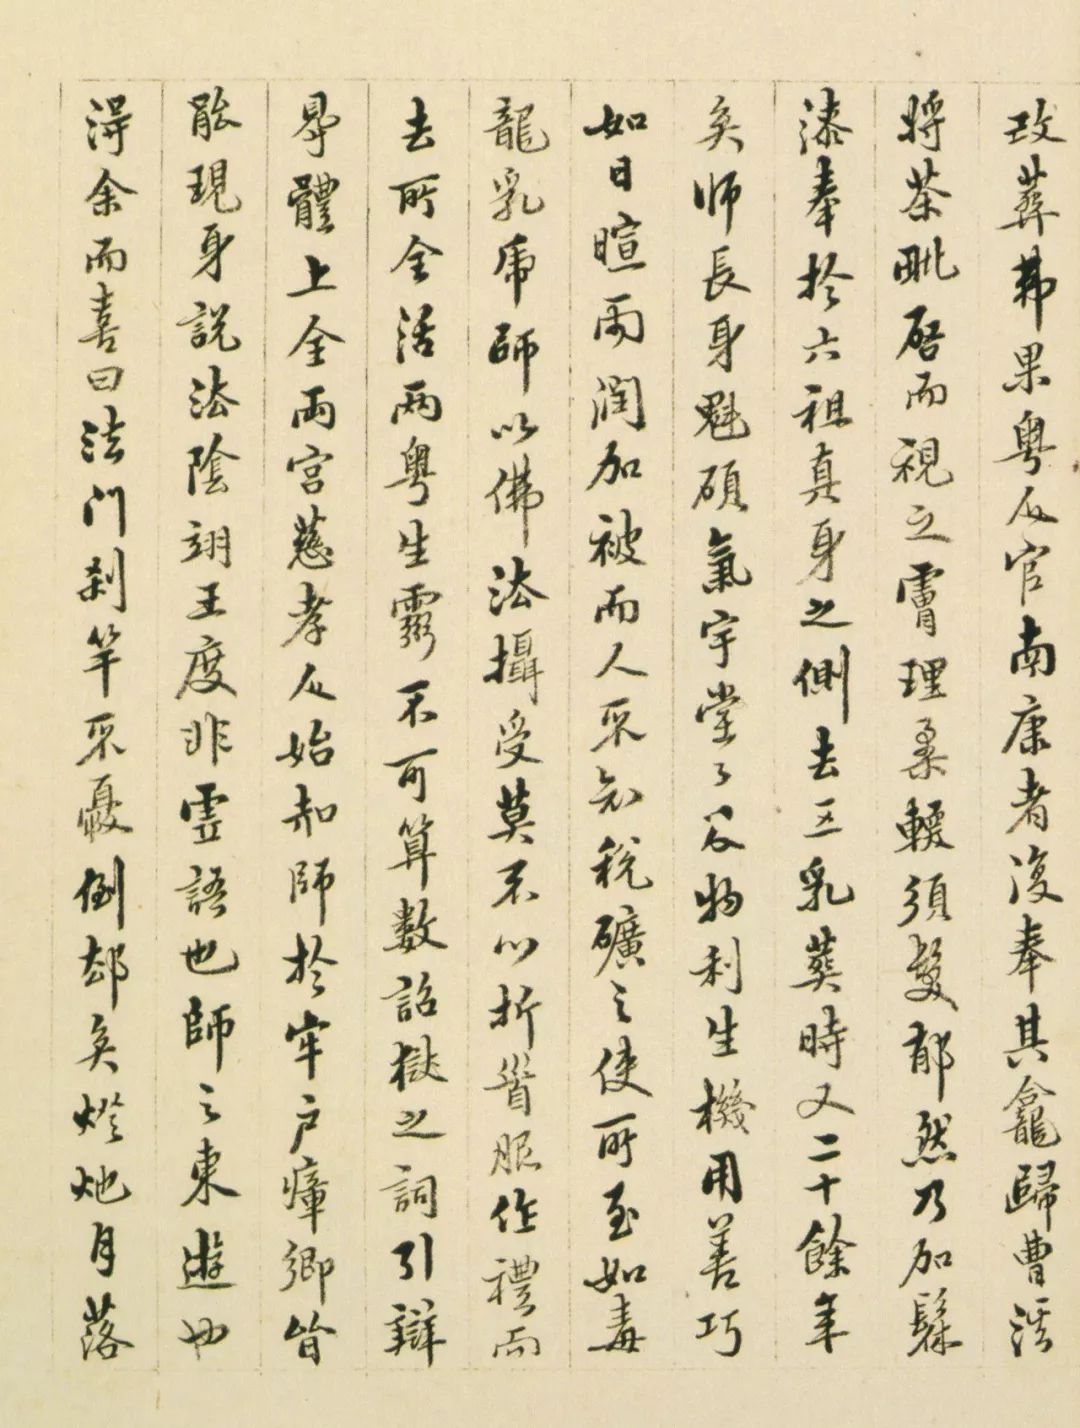 改葬弗果粤人官南康者復奉其龕歸曹溪
將荼毗啓而視之膚理柔輭須髮郁然乃加髹
漆奉於六祖真身之側去五乳葬時又二十餘年
矣師長身魁碩氣宇堂〻及物利生機用善巧
如日暄雨潤加被而人不知稅礦之使所至如毒
龍乳虎師以佛法攝受莫不心折首服作禮而
去所全活兩粤生靈不可算數詔獄之詞引辯
舉體上全兩宮慈孝人始知師於牢户瘴鄉皆
能現身説法陰翊王度非虛語也師之東遊也
得余而喜曰法門刹竿不憂倒却矣燈灺月落